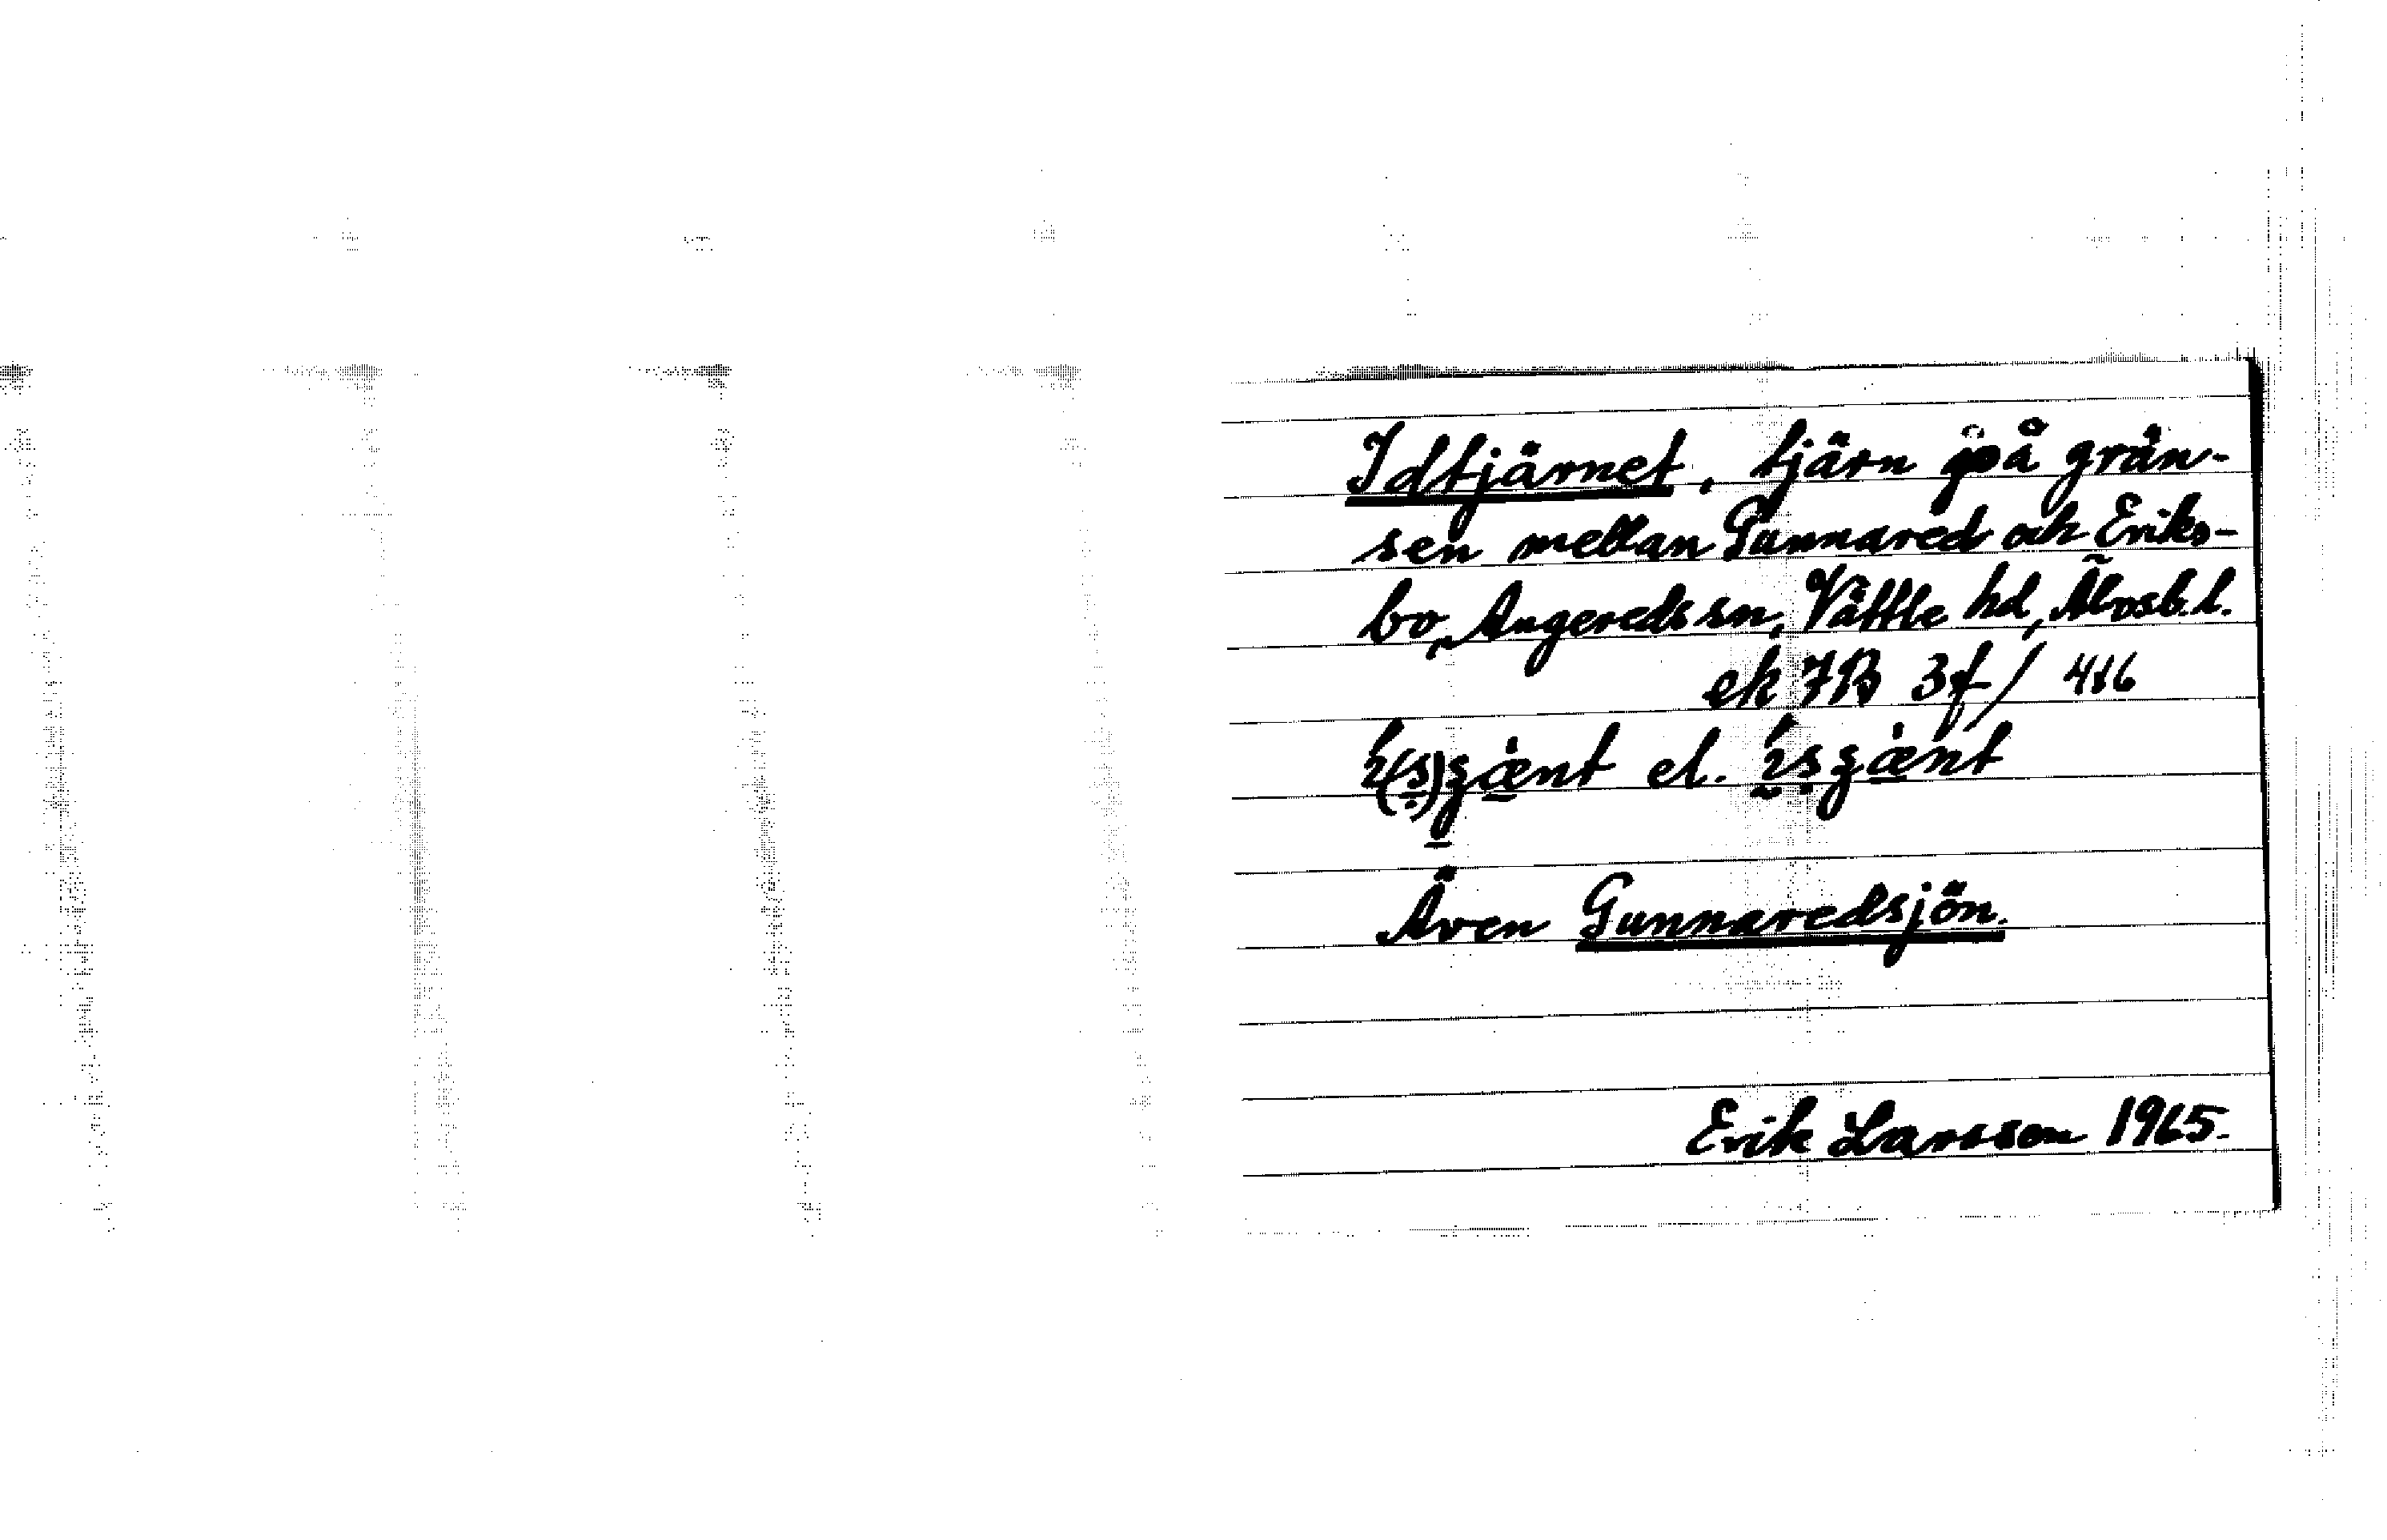 Idtjärnet, tjärn på grän-
sen mellan Gunnared och Eriks-
bo, Angereds sn, Vättle hd, Älvsb. l.
ek 7B 3f / 416
el.
Även Gunnaredsjön.
Erik Larsson 1965.